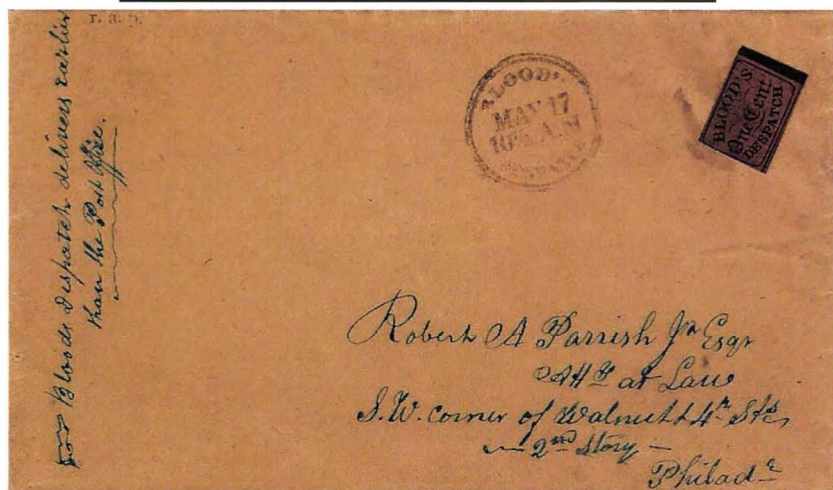 Bloods Despatch delivers earlier
than the Post Office.
BLOOD'S
MAY 17
10½ A.M
DESPATCH
BLOOD'S
One Cent
DESPATCH
Robert A Parrish Jr Esqr
Atty at Law
S.W. corner of Walnut & 4th Sts,
2nd Story
Philada